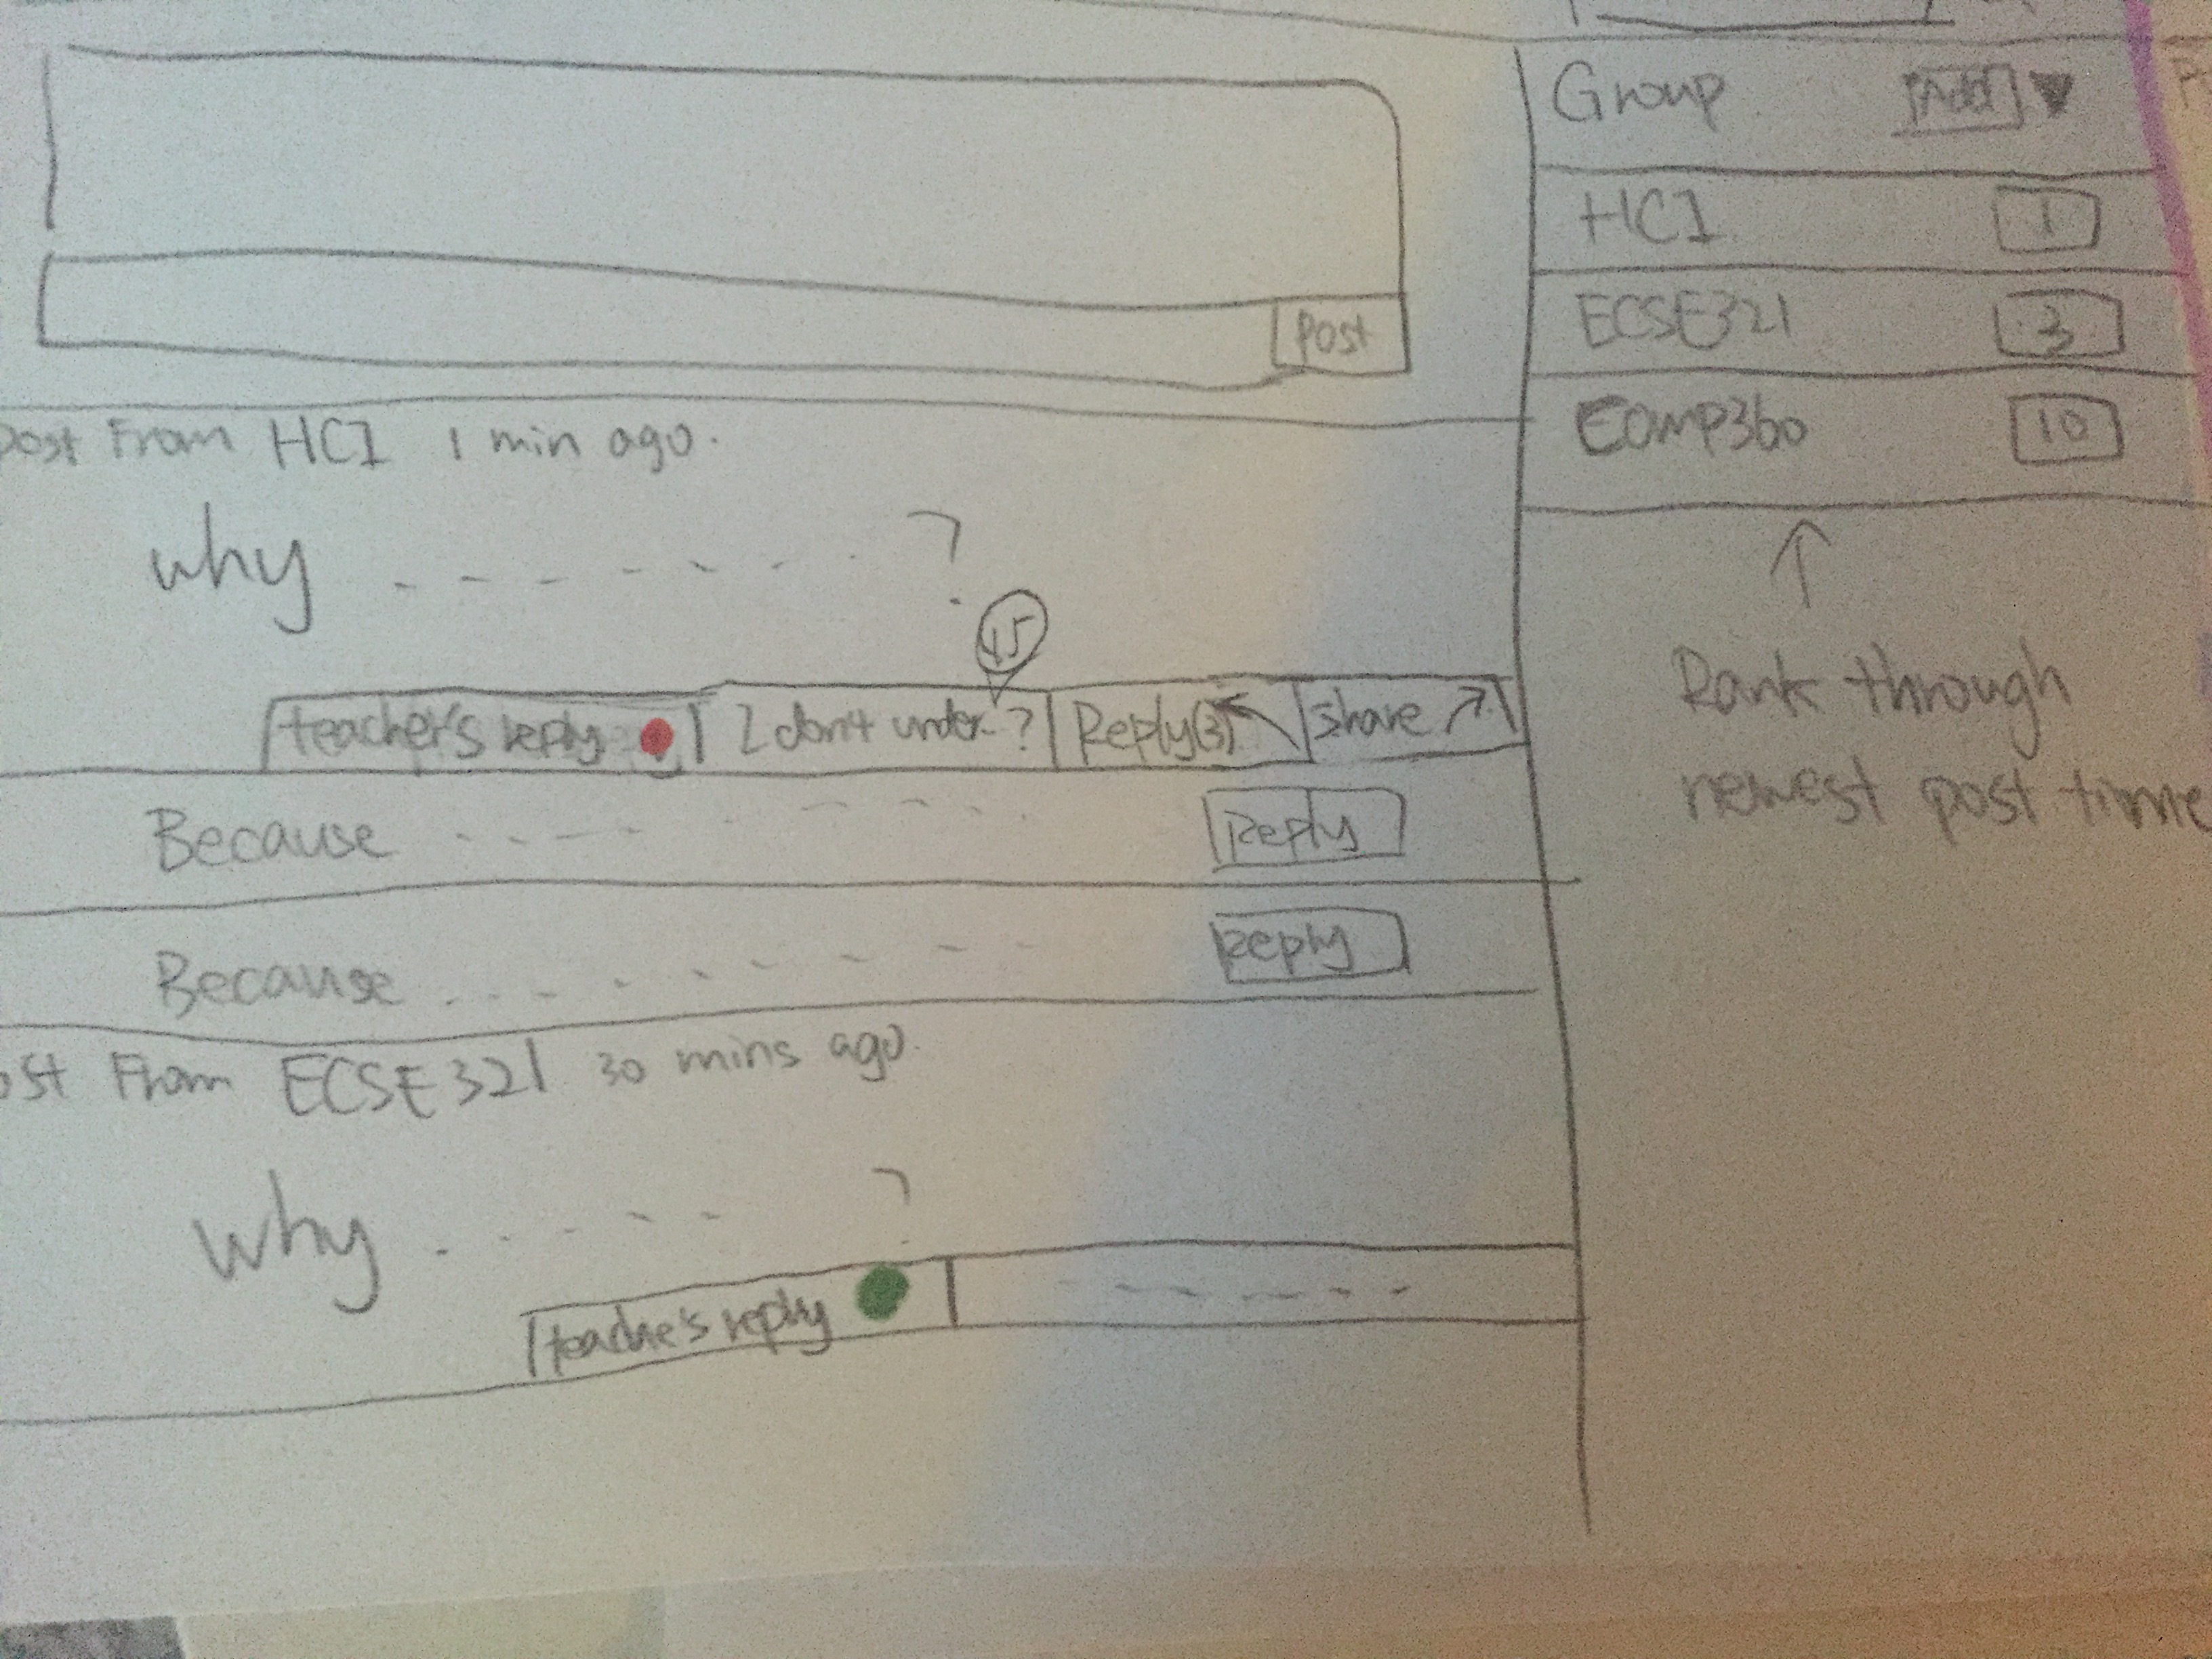 Post
post From HCI 1 min ago.
Why ?
teacher's reply I don't under..? Reply(3) Share
45
Because
Reply
Because
Reply
ost From ECSE321 30 mins ago.
Why ?
teacher's reply
Group
HCI 1
ECSE321 3
Comp360 10
Rank through
newest post time